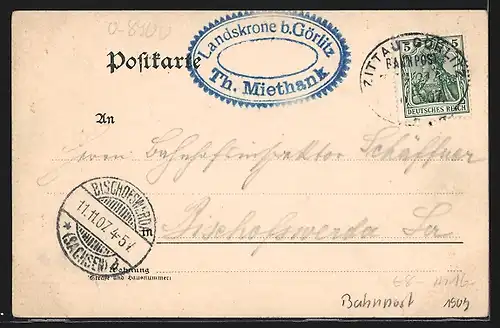 0-8500
Landskrone b. Görlitz
Th. Miethank
Postkarte
ZITTAU-GÖRLITZ
BAHNPOST
5 5
DEUTSCHES REICH
An
Herrn Bahnhofsinspektor Schäffner
BISCHOFSWERDA
11.11.07. 4-5N
* (SACHSEN) b
in Bischofswerda Sa
Wohnung
(Straße und Hausnummer)
Bahnpost